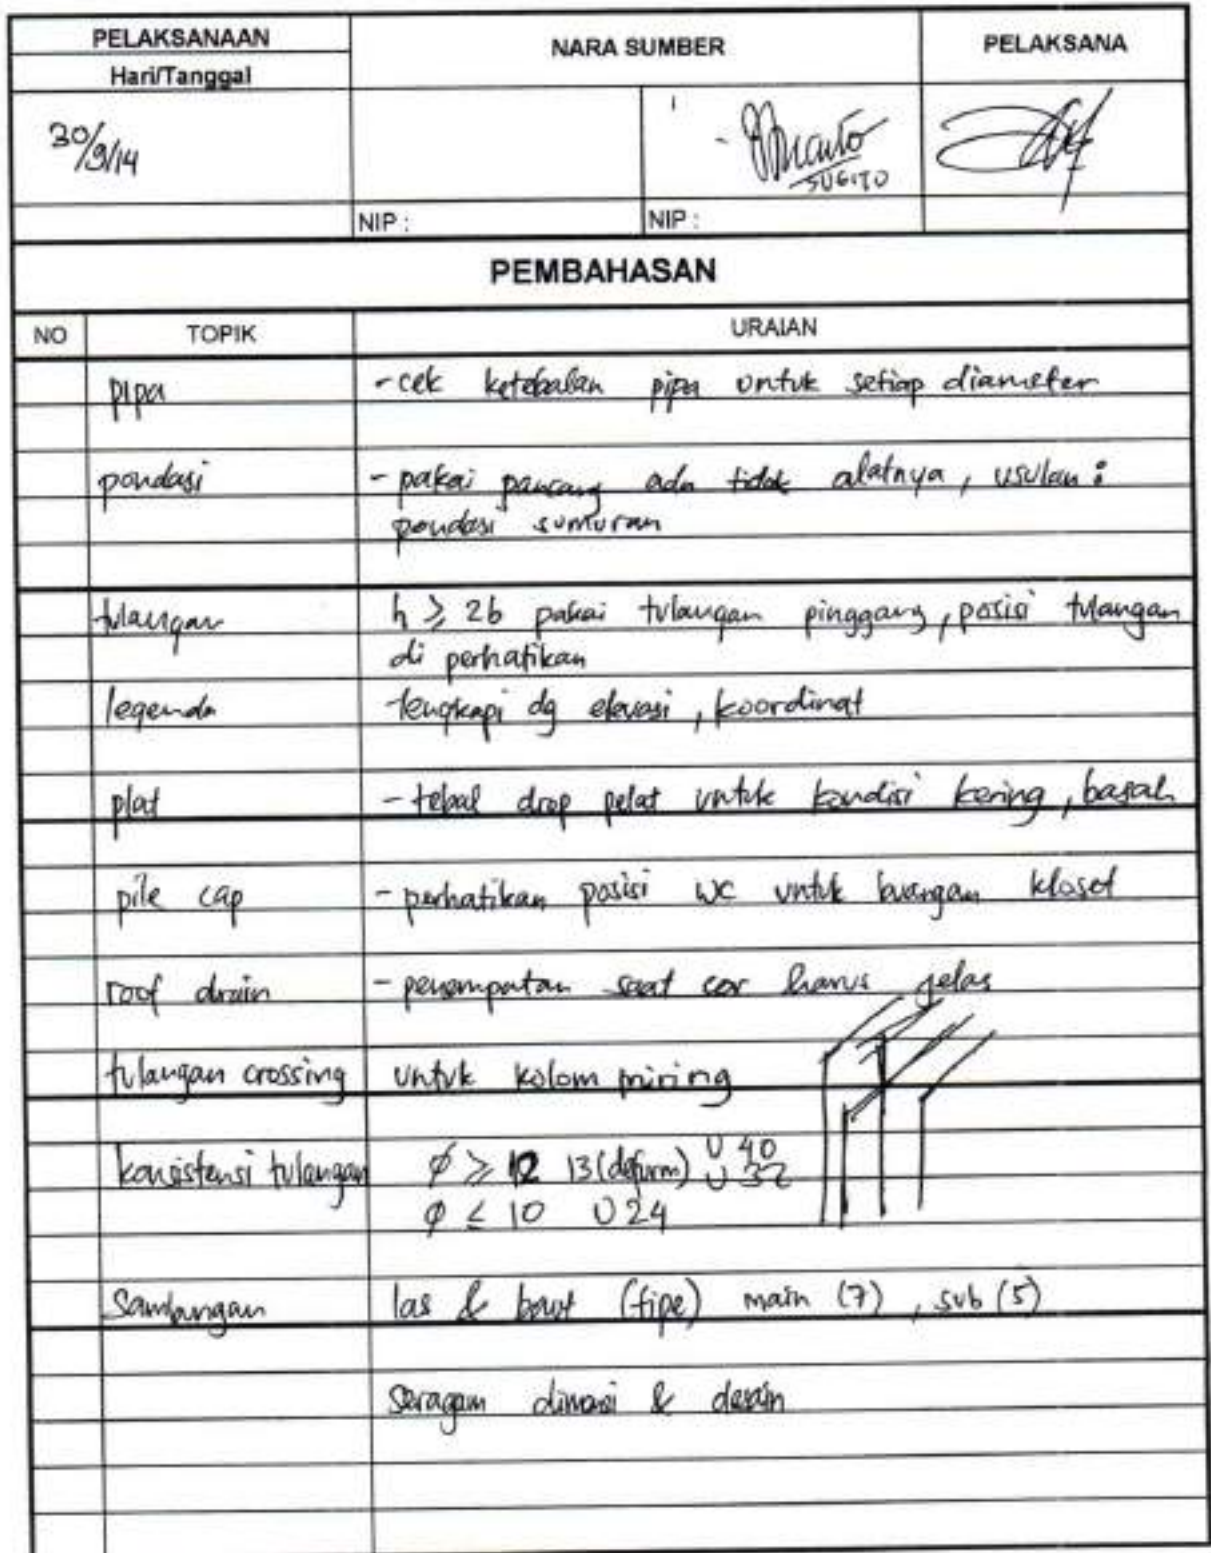 PELAKSANAAN
NARA SUMBER
PELAKSANA
Hari/Tanggal
30/9/14
SUGITO
NIP :
NIP :
PEMBAHASAN
NO TOPIK URAIAN
pipa - cek ketebalan pipa untuk setiap diameter
pondasi - pakai pancang ada tidak alatnya, usulan :
pondasi sumuran
tulangan h ≥ 2b pakai tulangan pinggang, posisi tulangan
di perhatikan
legenda lengkapi dg elevasi, koordinat
plat - tebal drop pelat untuk kondisi kering, basah
pile cap - perhatikan posisi WC untuk buangan kloset
roof drain - penempatan saat cor harus jelas
tulangan crossing untuk kolom miring
konsistensi tulangan ø ≥ 12 13 (deform) U 40
U 32
ø ≤ 10 U 24
Sambungan las & baut (tipe) main (7), sub (5)
seragam dimensi & desain